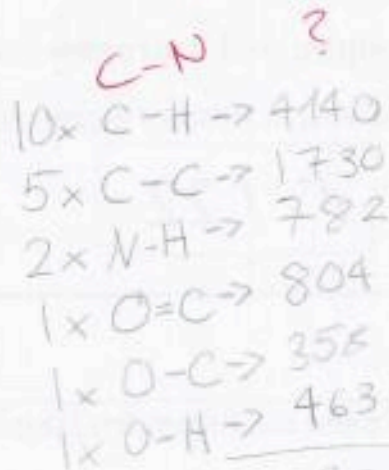 C-N ?
10x C-H -> 4140
5x C-C -> 1730
2x N-H -> 782
1x O=C -> 804
1x O-C -> 358
1x O-H -> 463